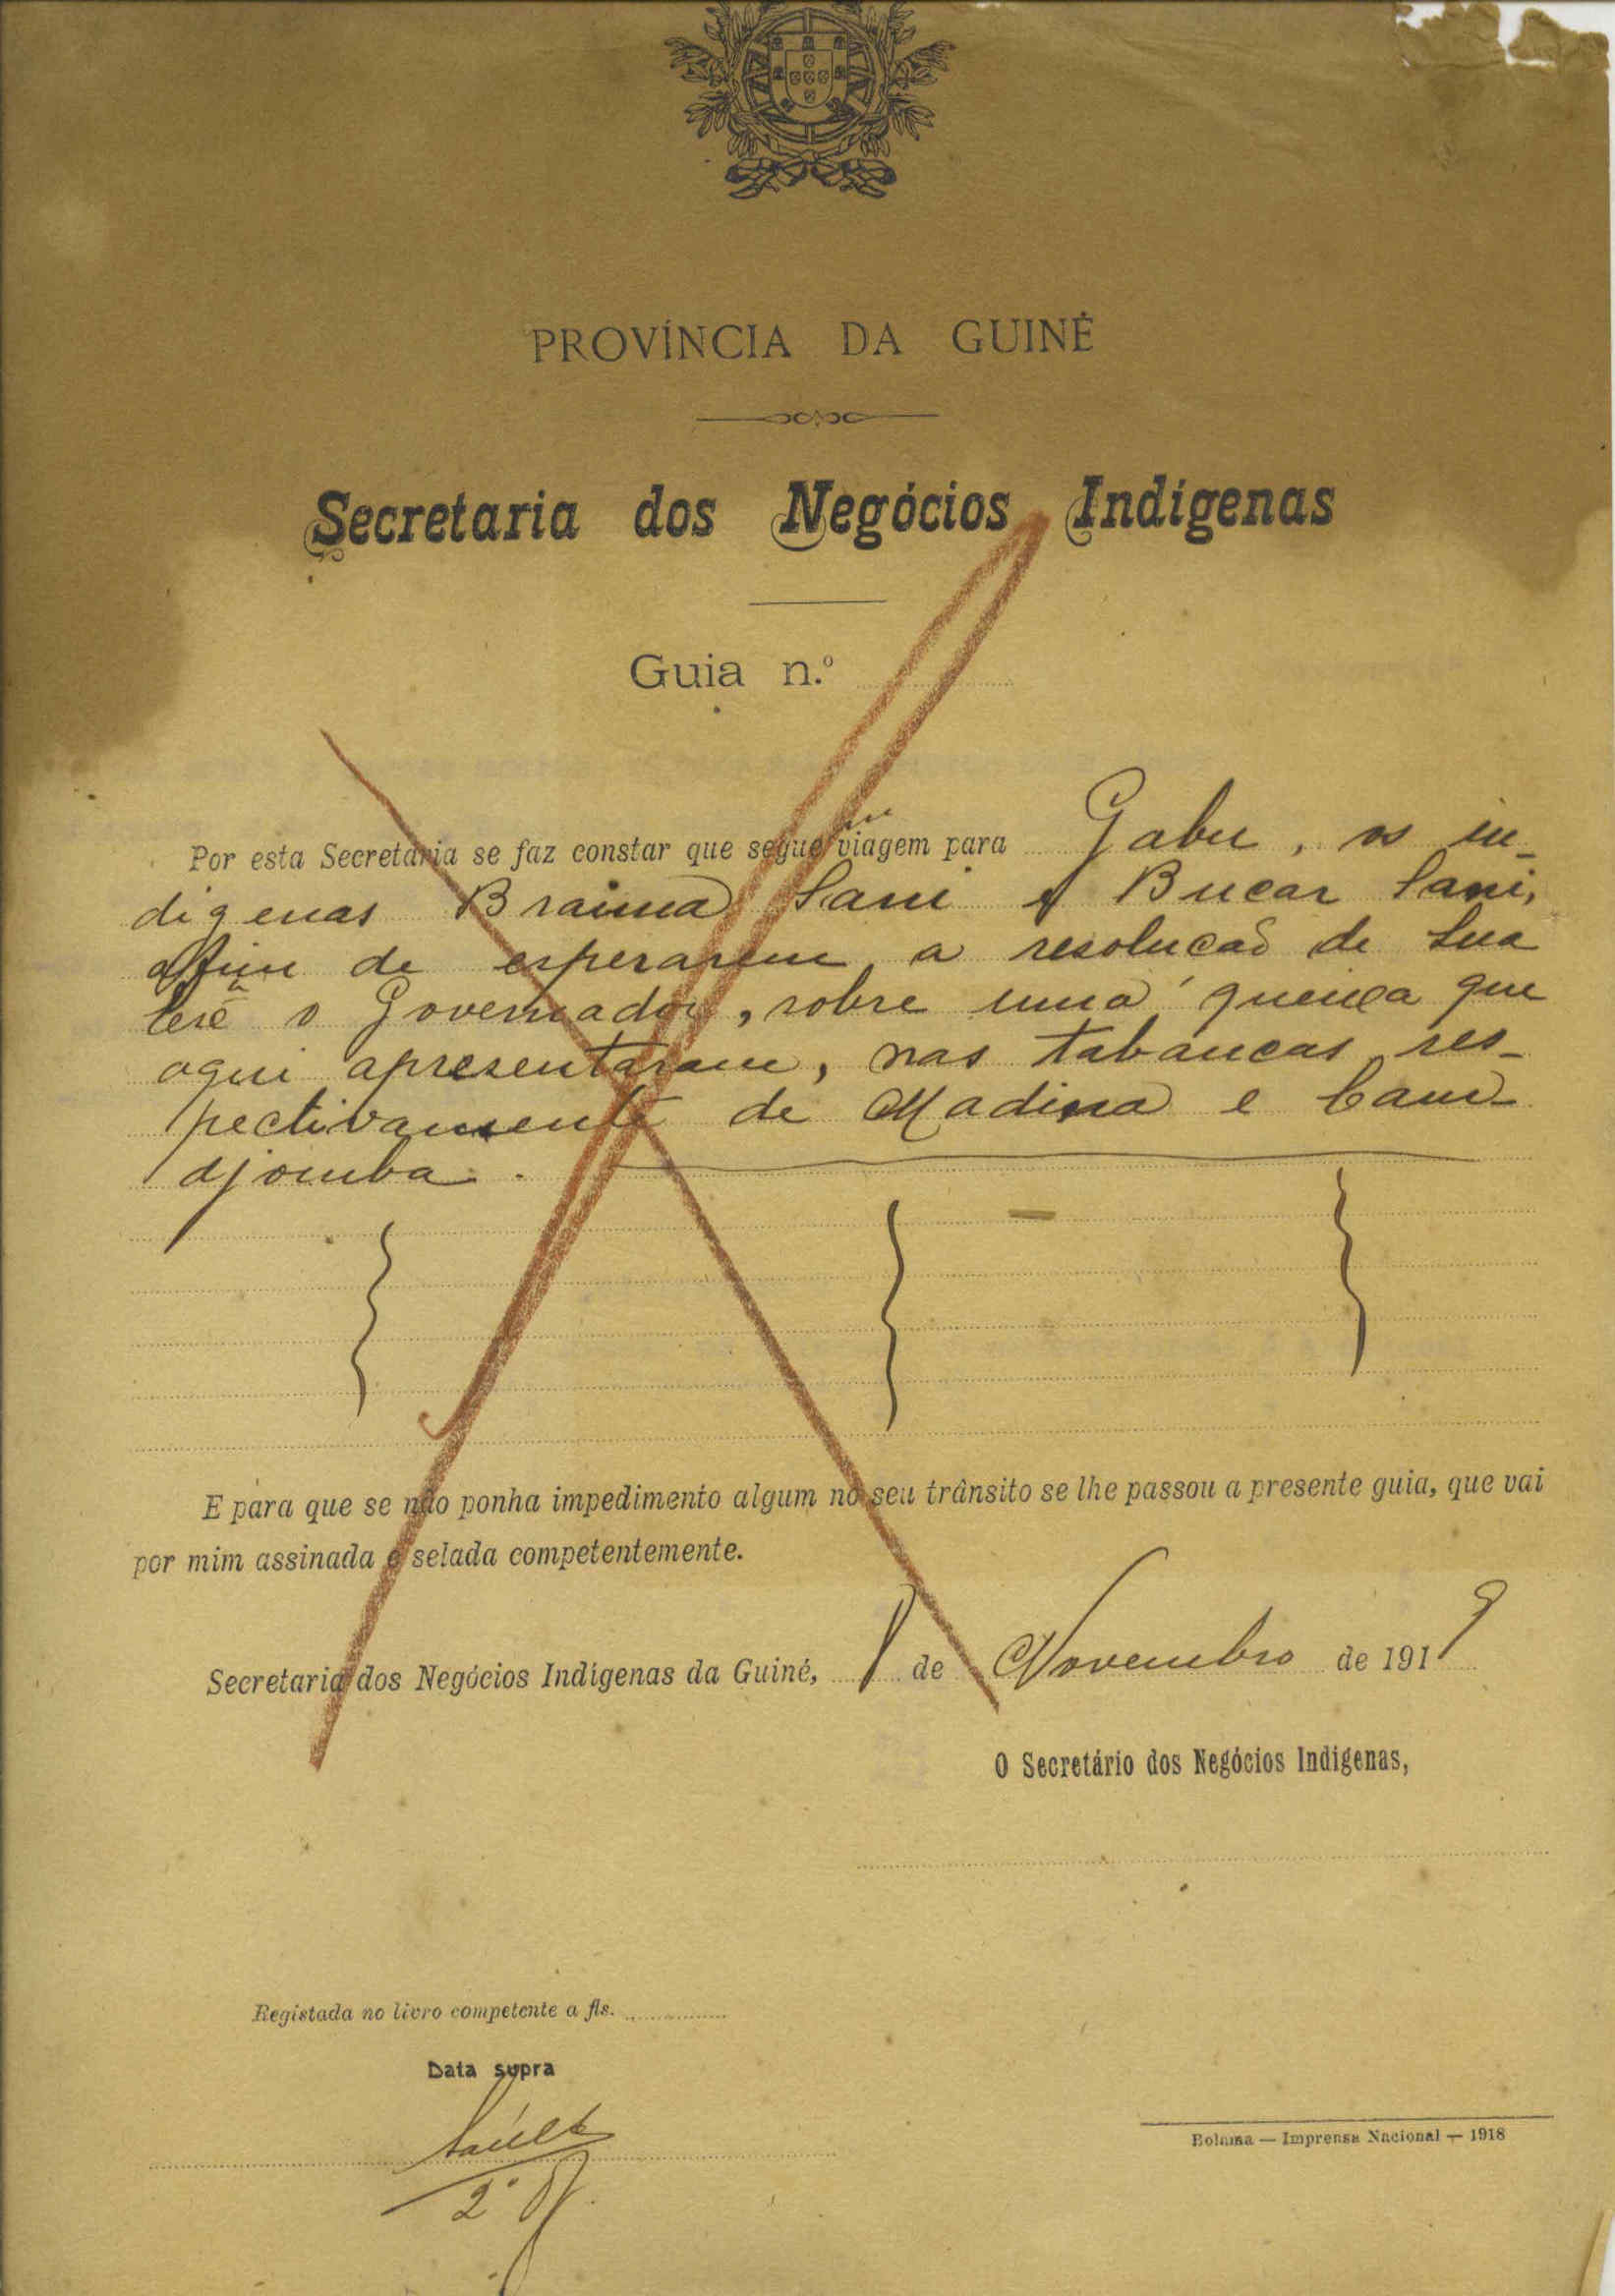 PROVÍNCIA DA GUINÉ
Secretaria dos Negócios Indígenas
Guia n.º
Por esta Secretaria se faz constar que seguem viagem para Gabu, os in-
digenas Braima Sani e Bucar Sani,
afim de esperarem a resolucaõ de Sua
o Governador, sobre uma queixa que
aqui apresentaram, nas tabancas res-
pectivamente de Madina e Cam-
djomba.
E para que se não ponha impedimento algum no seu trânsito se lhe passou a presente guia, que vai
por mim assinada e selada competentemente.
Secretaria dos Negócios Indígenas da Guiné, de Novembro de 1919
O Secretário dos Negócios Indigenas,
Registada no livro competente a fls.
Data supra
2º
Bolama — Imprensa Nacional — 1918